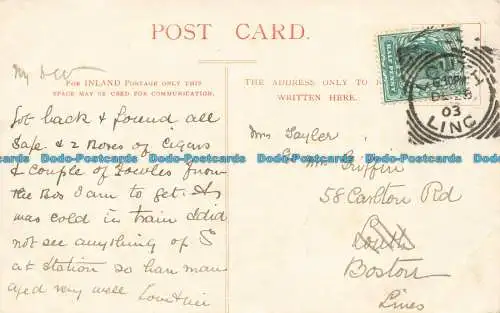 POST CARD.
FOR INLAND POSTAGE ONLY THIS
SPACE MAY BE USED FOR COMMUNICATION.
THE ADDRESS ONLY TO
WRITTEN HERE.
HALF PENNY
03
LINC
My D W
Got back & found all
safe & 2 Boxes of Cigars
& couple of fowles from
the Bos I am to get. It
was cold in train I did
not see anything of S
at station so han man
aged very well
Mrs Tayler
Mrs Griffin
58 Carlton Rd
Louth
Boston
Lincs
Dodo-Postcards Dodo-Postcards Dodo-Postcards Dodo-Postcards Dodo-Postcards